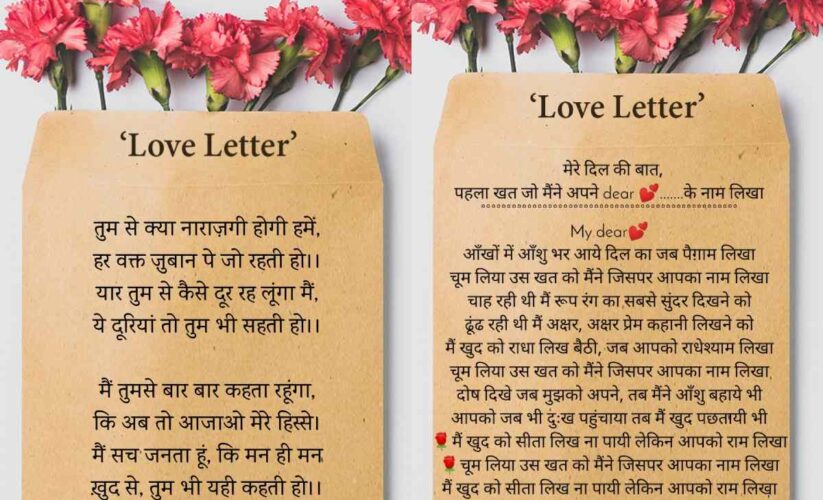 ‘Love Letter’
तुम से क्या नाराज़गी होगी हमें,
हर वक्त ज़ुबान पे जो रहती हो।।
यार तुम से कैसे दूर रह लूंगा मैं,
ये दूरियां तो तुम भी सहती हो।।
मैं तुमसे बार बार कहता रहूंगा,
कि अब तो आजाओ मेरे हिस्से।
मैं सच जनता हूं, कि मन ही मन
ख़ुद से, तुम भी यही कहती हो।।
‘Love Letter’
मेरे दिल की बात,
पहला खत जो मैंने अपने dear 💕.......के नाम लिखा
My dear💕
आँखों में आँशु भर आये दिल का जब पैग़ाम लिखा
चूम लिया उस खत को मैंने जिसपर आपका नाम लिखा
चाह रही थी मैं रूप रंग का सबसे सुंदर दिखने को
ढूंढ रही थी मैं अक्षर, अक्षर प्रेम कहानी लिखने को
मैं खुद को राधा लिख बैठी, जब आपको राधेश्याम लिखा
चूम लिया उस खत को मैंने जिसपर आपका नाम लिखा
दोष दिखे जब मुझको अपने, तब मैंने आँशु बहाये भी
आपको जब भी दुःख पहुंचाया तब मैं खुद पछतायी भी
🌹मैं खुद को सीता लिख ना पायी लेकिन आपको राम लिखा
🌹चूम लिया उस खत को मैंने जिसपर आपका नाम लिखा
मैं खुद को सीता लिख ना पायी लेकिन आपको राम लिखा